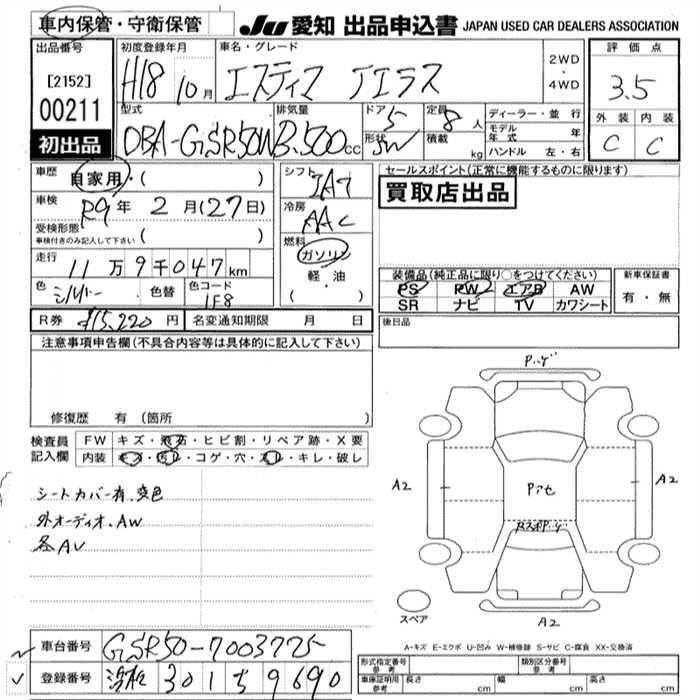 車内保管・守衛保管
JU 愛知 出品申込書 JAPAN USED CAR DEALERS ASSOCIATION
出品番号
[2152]
00211
初出品
初度登録年月
H18 10月
車名・グレード
エスティマ アエラス
2WD
・
4WD
評価点
3.5
外装 内装
C C
型式
DBA-GSR50W
排気量
3.500cc
ドア 5
形状 SW
定員 8人
積載 kg
ディーラー・並行
モデル年式 年
ハンドル 左・右
車歴 自家用・( )
車検 R9年2月(27日)
受検形態
車検付きのみ記入して下さい ( )
走行 11万9千047km
色 シルバー 色替 色コード 1F8
R券 ¥15,220円 名変通知期限 月 日
シフト IAT
冷房 AAC
燃料
ガソリン
軽・油
・
( )
セールスポイント(正常に機能するものに限ります)
買取店出品
装備品(純正品に限り○をつけてください)
PS PW エアB AW
SR ナビ TV カワシート
新車保証書
有・無
後日品
注意事項申告欄(不具合内容等は具体的に記入して下さい)
修復歴 有(箇所 )
検査員記入欄
FW キズ・飛石・ヒビ割・リペア跡・X要
内装 キズ・汚レ・コゲ・穴・スレ・キレ・破レ
シートカバー有、変色
外オーディオ、AW
各AU
A2
A2
A2
スペア
A-キズ E-エクボ U-凹み W-補修跡 S-サビ C-腐食 XX-交換済
車台番号 GSR50-7003725
登録番号 浜松 301 ち 9690
形式指定番号
参考
類別区分番号
参考
車庫証明用
参考
長さ cm 幅 cm 高さ cm